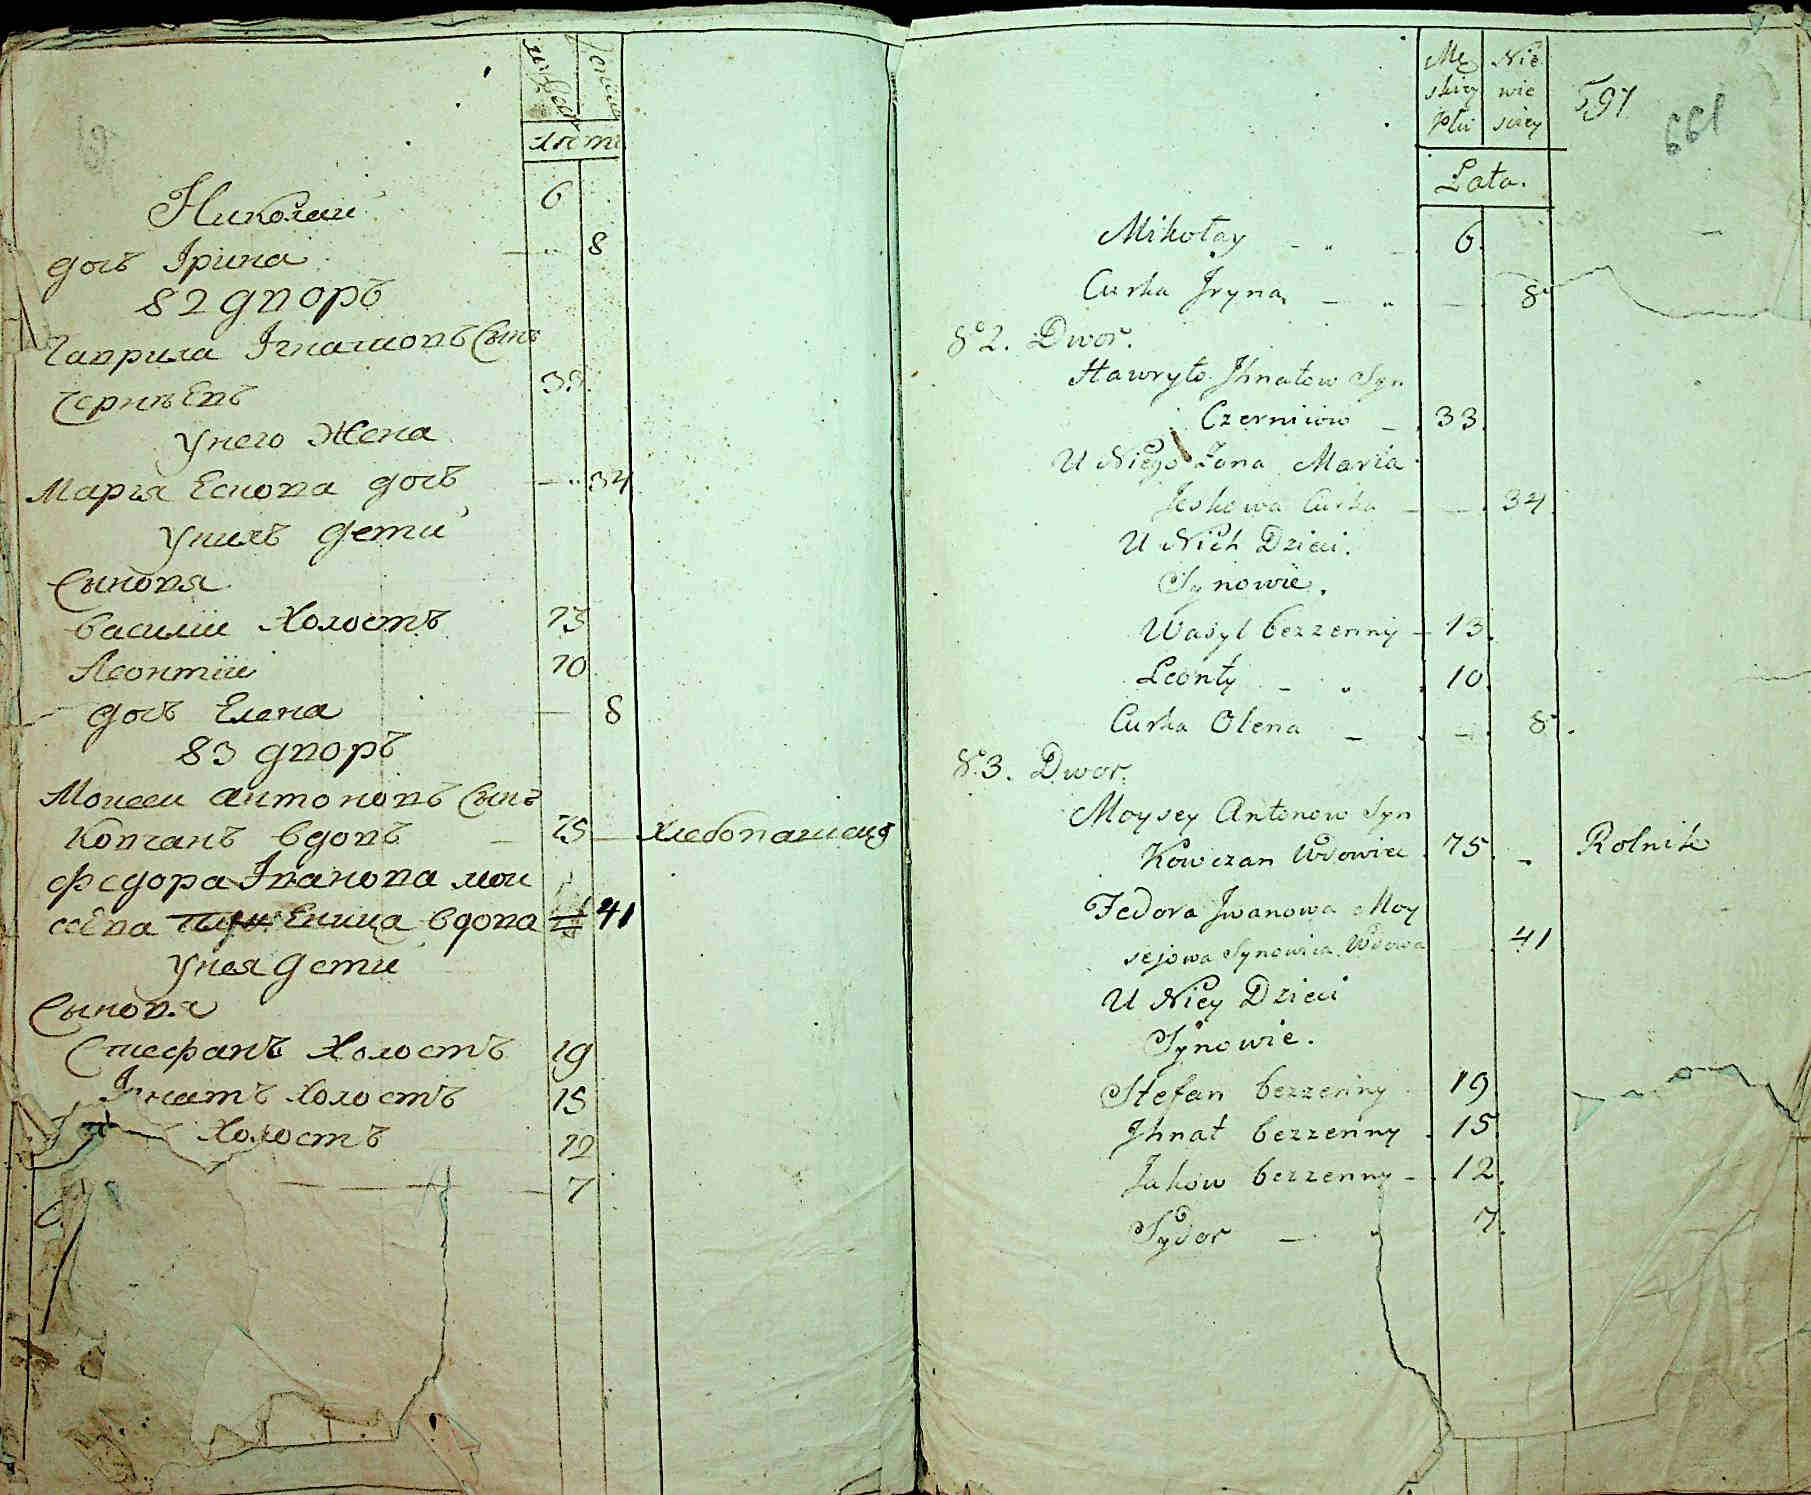 лѣта
Николай 6
дочь Ірина 8
82 дворъ
Гаврила Ігнатовъ Сынъ
Чернѣевъ 33
Унего Жена
Марѣя Ескова дочь 34
Унихъ дети
Сыновя
Василий Холостъ 13
Леонтий 10
дочь Елена 8
83 дворъ
Моисей антоновъ Сынъ
Ковчанъ вдовъ 75 хлебопашецъ
федора Іванова мои
сеева вдова 41
Унея дети
Сыновя
Стефанъ Холостъ 19
Ігнатъ холостъ 15
Холостъ 12
7
Mę Nie
skiey wie
płci sciey
591
199
Lata.
Mikołay 6.
Curka Jryna 8
82. Dwor.
Hawryło Jhnatow Syn
Czerniiow 33.
U Niego Zona Maria
Jeskowa Curka 34
U Nich Dzieci.
Synowie.
Wasyl bezzenny 13.
Leonty 10.
Curka Olena 8.
83. Dwor.
Moysey Antonow Syn
Kowczan Wdowiec 75 Rolnik
Fedora Jwanowa Moy
sejowa Synowica Wdowa 41
U Niey Dzieci
Synowie.
Stefan bezzenny 19
Jhnat bezzenny 15
Jakow bezzenny 12.
Sydor 7.